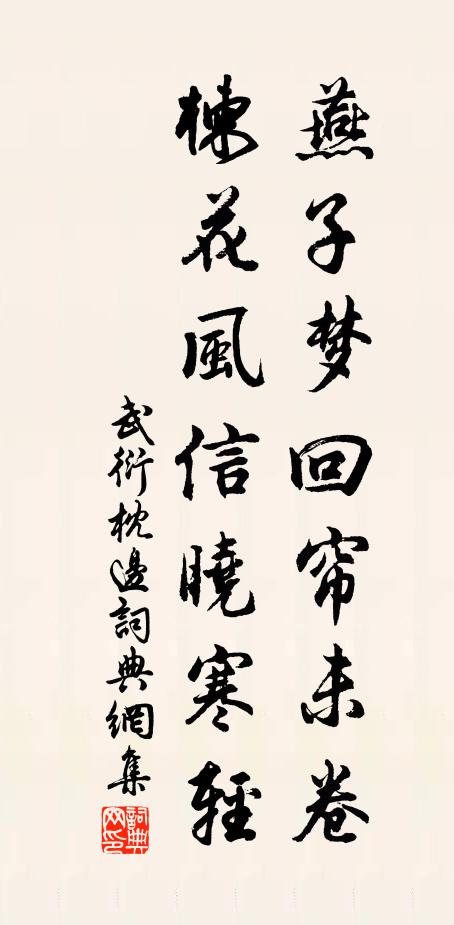 燕子梦回帘未卷
楝花風信曉寒輕
武衍枕邊詞典網集
詞典网印